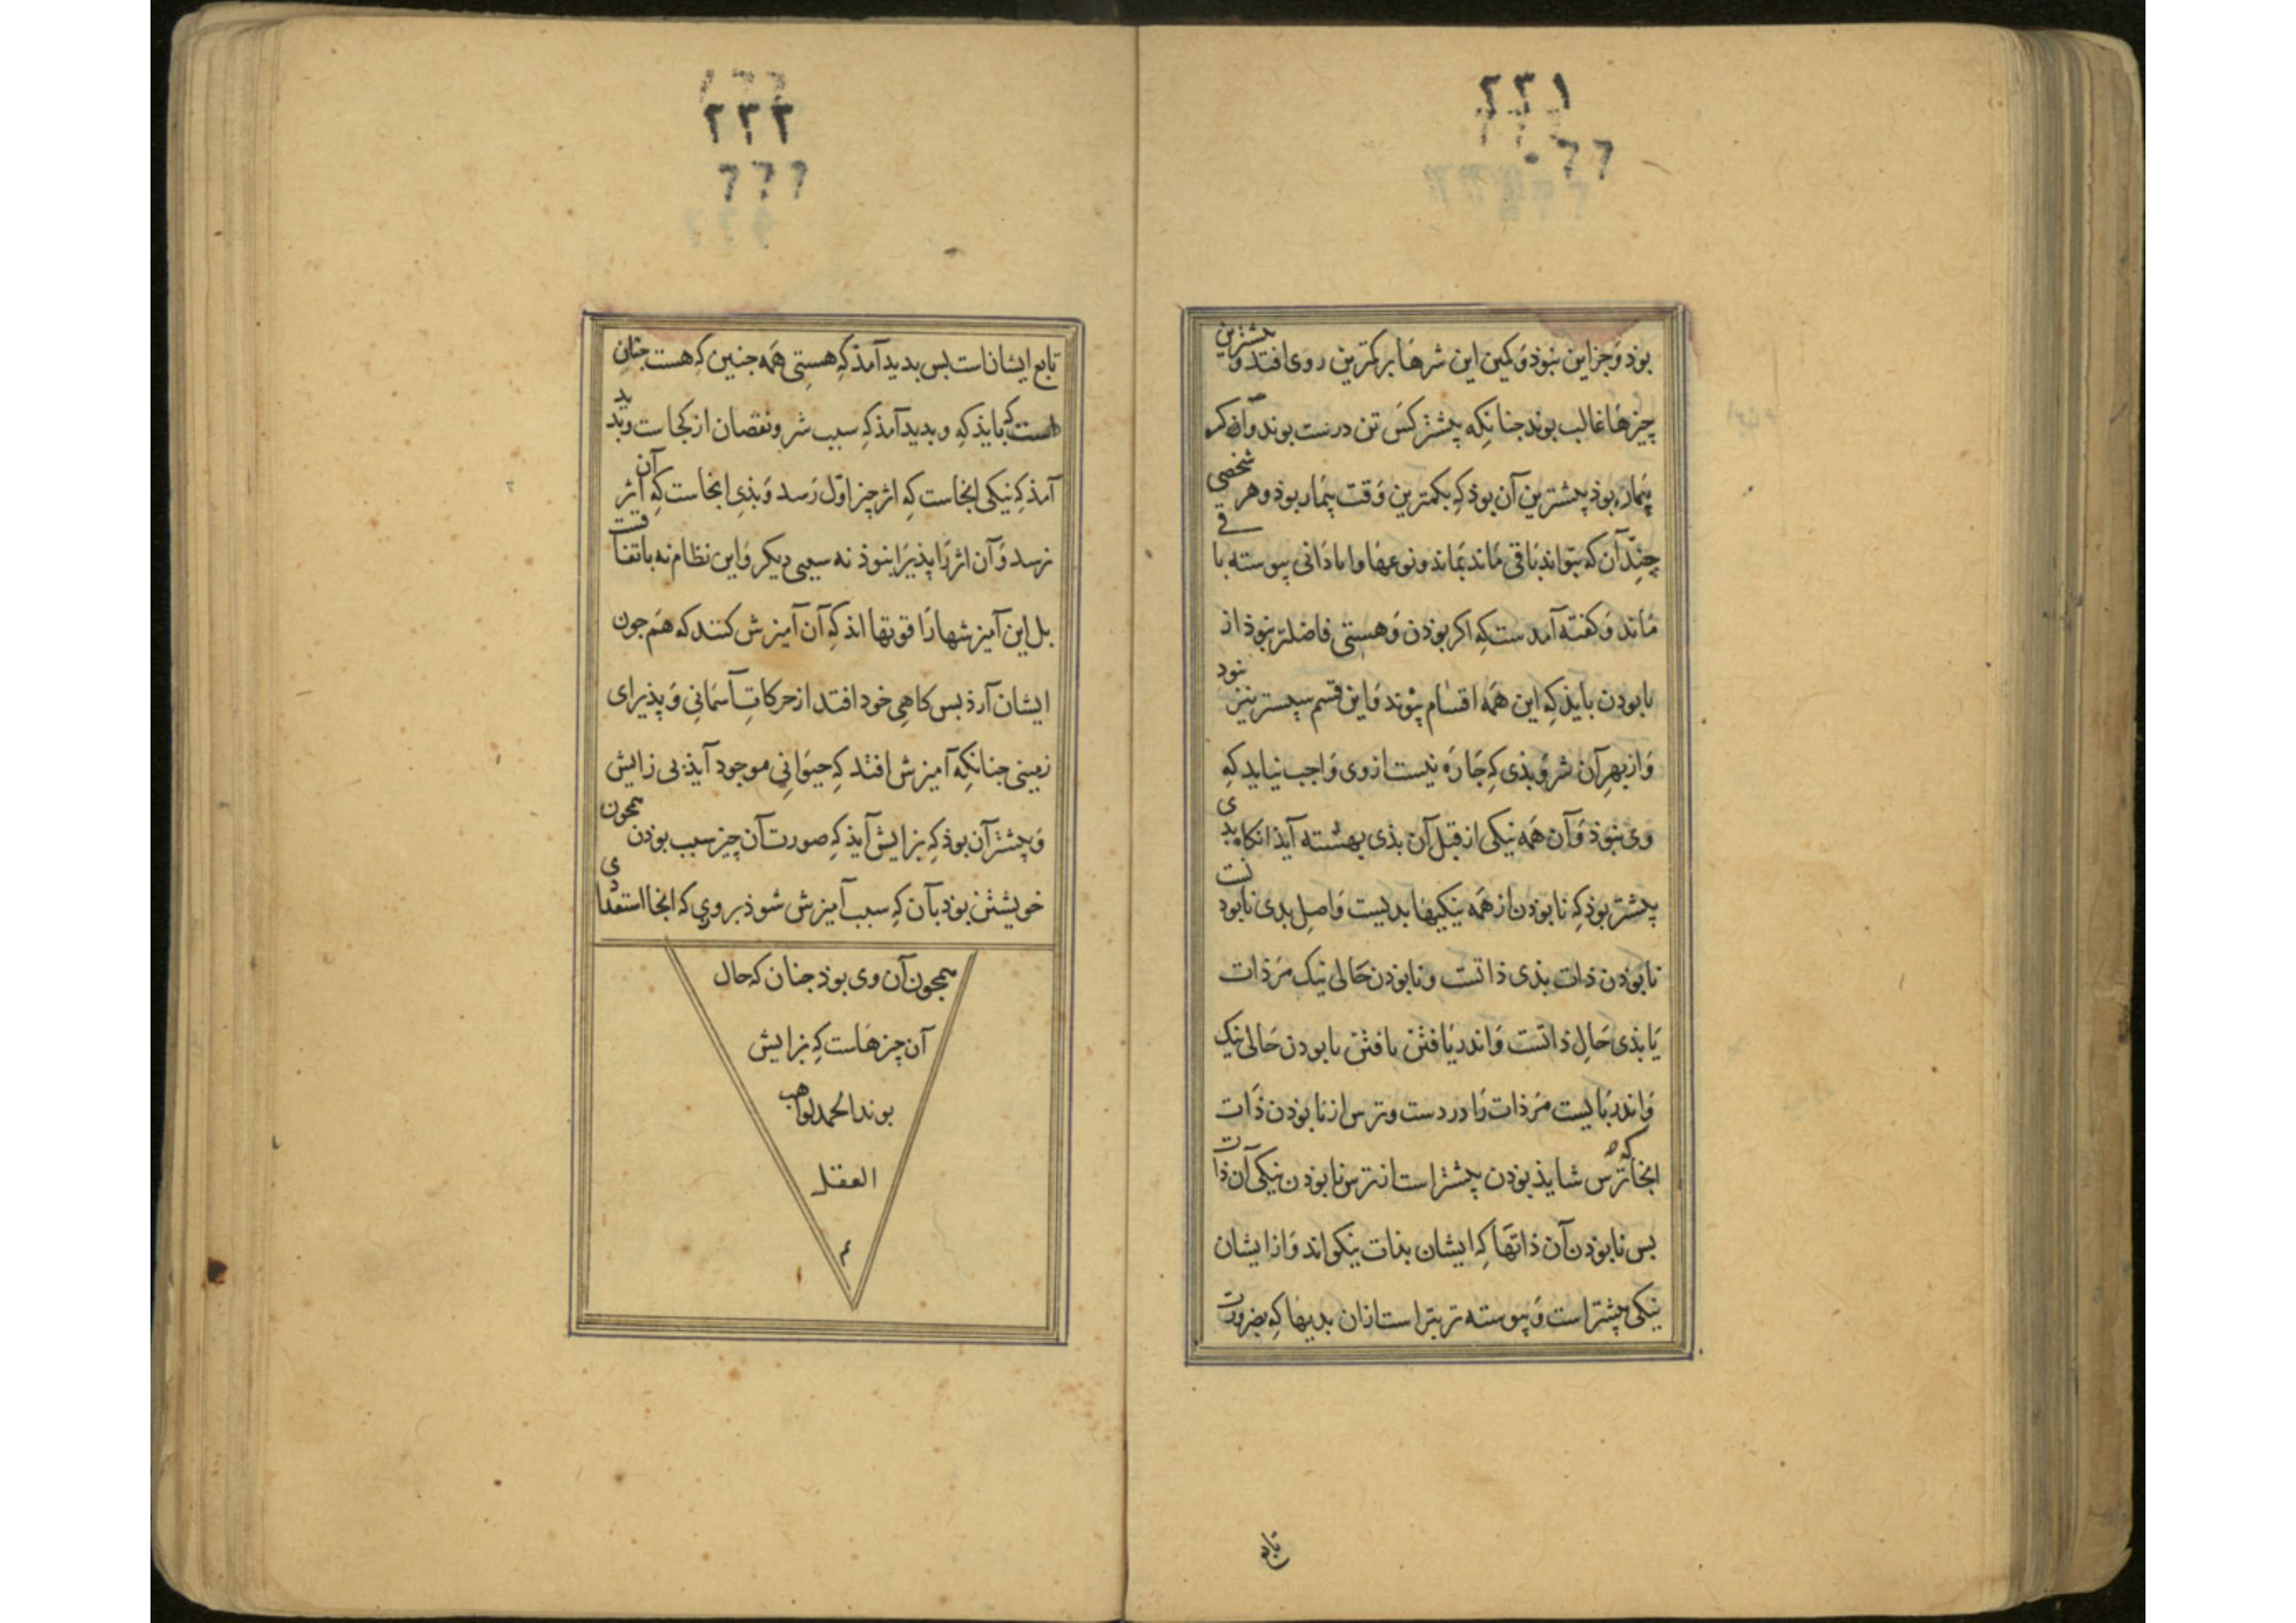 ٢٢١
بوذ وَجز این نبوذ وَلیکن این شرها بر کمترین روی افتد و بیشترین
چیزها غالب بوند جنانکه بیشتر کس تن درست بوند وآن کر
بیمار بوذ بیشترین آن بوذ کِه بکمترین وَقت بیمار بوذ وهر شخصی
چندِ آن که بتواند باقی ماند بماند ونوعها وابادانی پیوسته باقی
ماند وَکفته آمدست کِه اکر بوذن وَهستی فاضلتر نبوذ از
نابودن بایذ کِه این همه اقسام نبوند وَاین قسم سپستر نیز نبود
وَاز بهرِ آن شر وَبذی کِه جاره نیست از وی وَاجب نیاید کِه
وی نبوذ وَآن همه نیکی از قبل آن بذی بهشته آیذ انکاه بدی
بیشتر بوذ کِه نابوذن از همه نیکیها بدیست وَاصلِ بدی نابودنست
نابوذن ذات بذی ذاتست ونابوذن حَالی نیک مَر ذات
یَا بذی حَالِ ذاتست وَاندر یَافتن یافتن نابودن حَالی نیک
وَاندر بَایست مَر ذات رَا دردست وترس از نابوذن ذَات
انجا که ترس شایذ بوذن بیشتر است از ترس نابوذن نیکی آن ذات
بس نابوذن آن ذاتها کِه ایشان بذات نیکواند وَاز ایشان
نیکی بیشتر است وَپیوسته تر بتر است از آن بدیها کِه بضرورت
٢٢٢
تابع ایشانست بس بدید آمذ کِه هستی همه جنین کِه هست جنان
است که بایذ کِه و بدید آمذ کِه سبب شر ونقصان از کجاست وبدید
آمذ کِه نیکی انجاست کِه اثر چیز اوّل رَسد وَبذی انجاست کِه آن اثر
نرسد وَآن اثر رَا پذیرَا نبوذ نه سببی دیکر وَاین نظام نه باتفاقست
بل این آمیزشها رَا قوتها اند کِه آن آمیزش کنند که هَم جون
ایشان آرذ بس کاهی خود افتد از حرکاتِ آسمانی وَپذیرای
زمینی جنانکِه آمیزش افتد کِه حیوَانی موجود آیذ بی زایش
وَبیشتر آن بوذ کِه بزایش آیذ کِه صورت آن چیز سبب بوذن همجون
خویشتن بوذ بآن کِه سبب آمیزش شوذ بر وی که انجا استعدادی
همجون آن وی بوذ جنان که حال
آن چیزهاست کِه بزایش
بوند الحمد لواهب
العقل
م